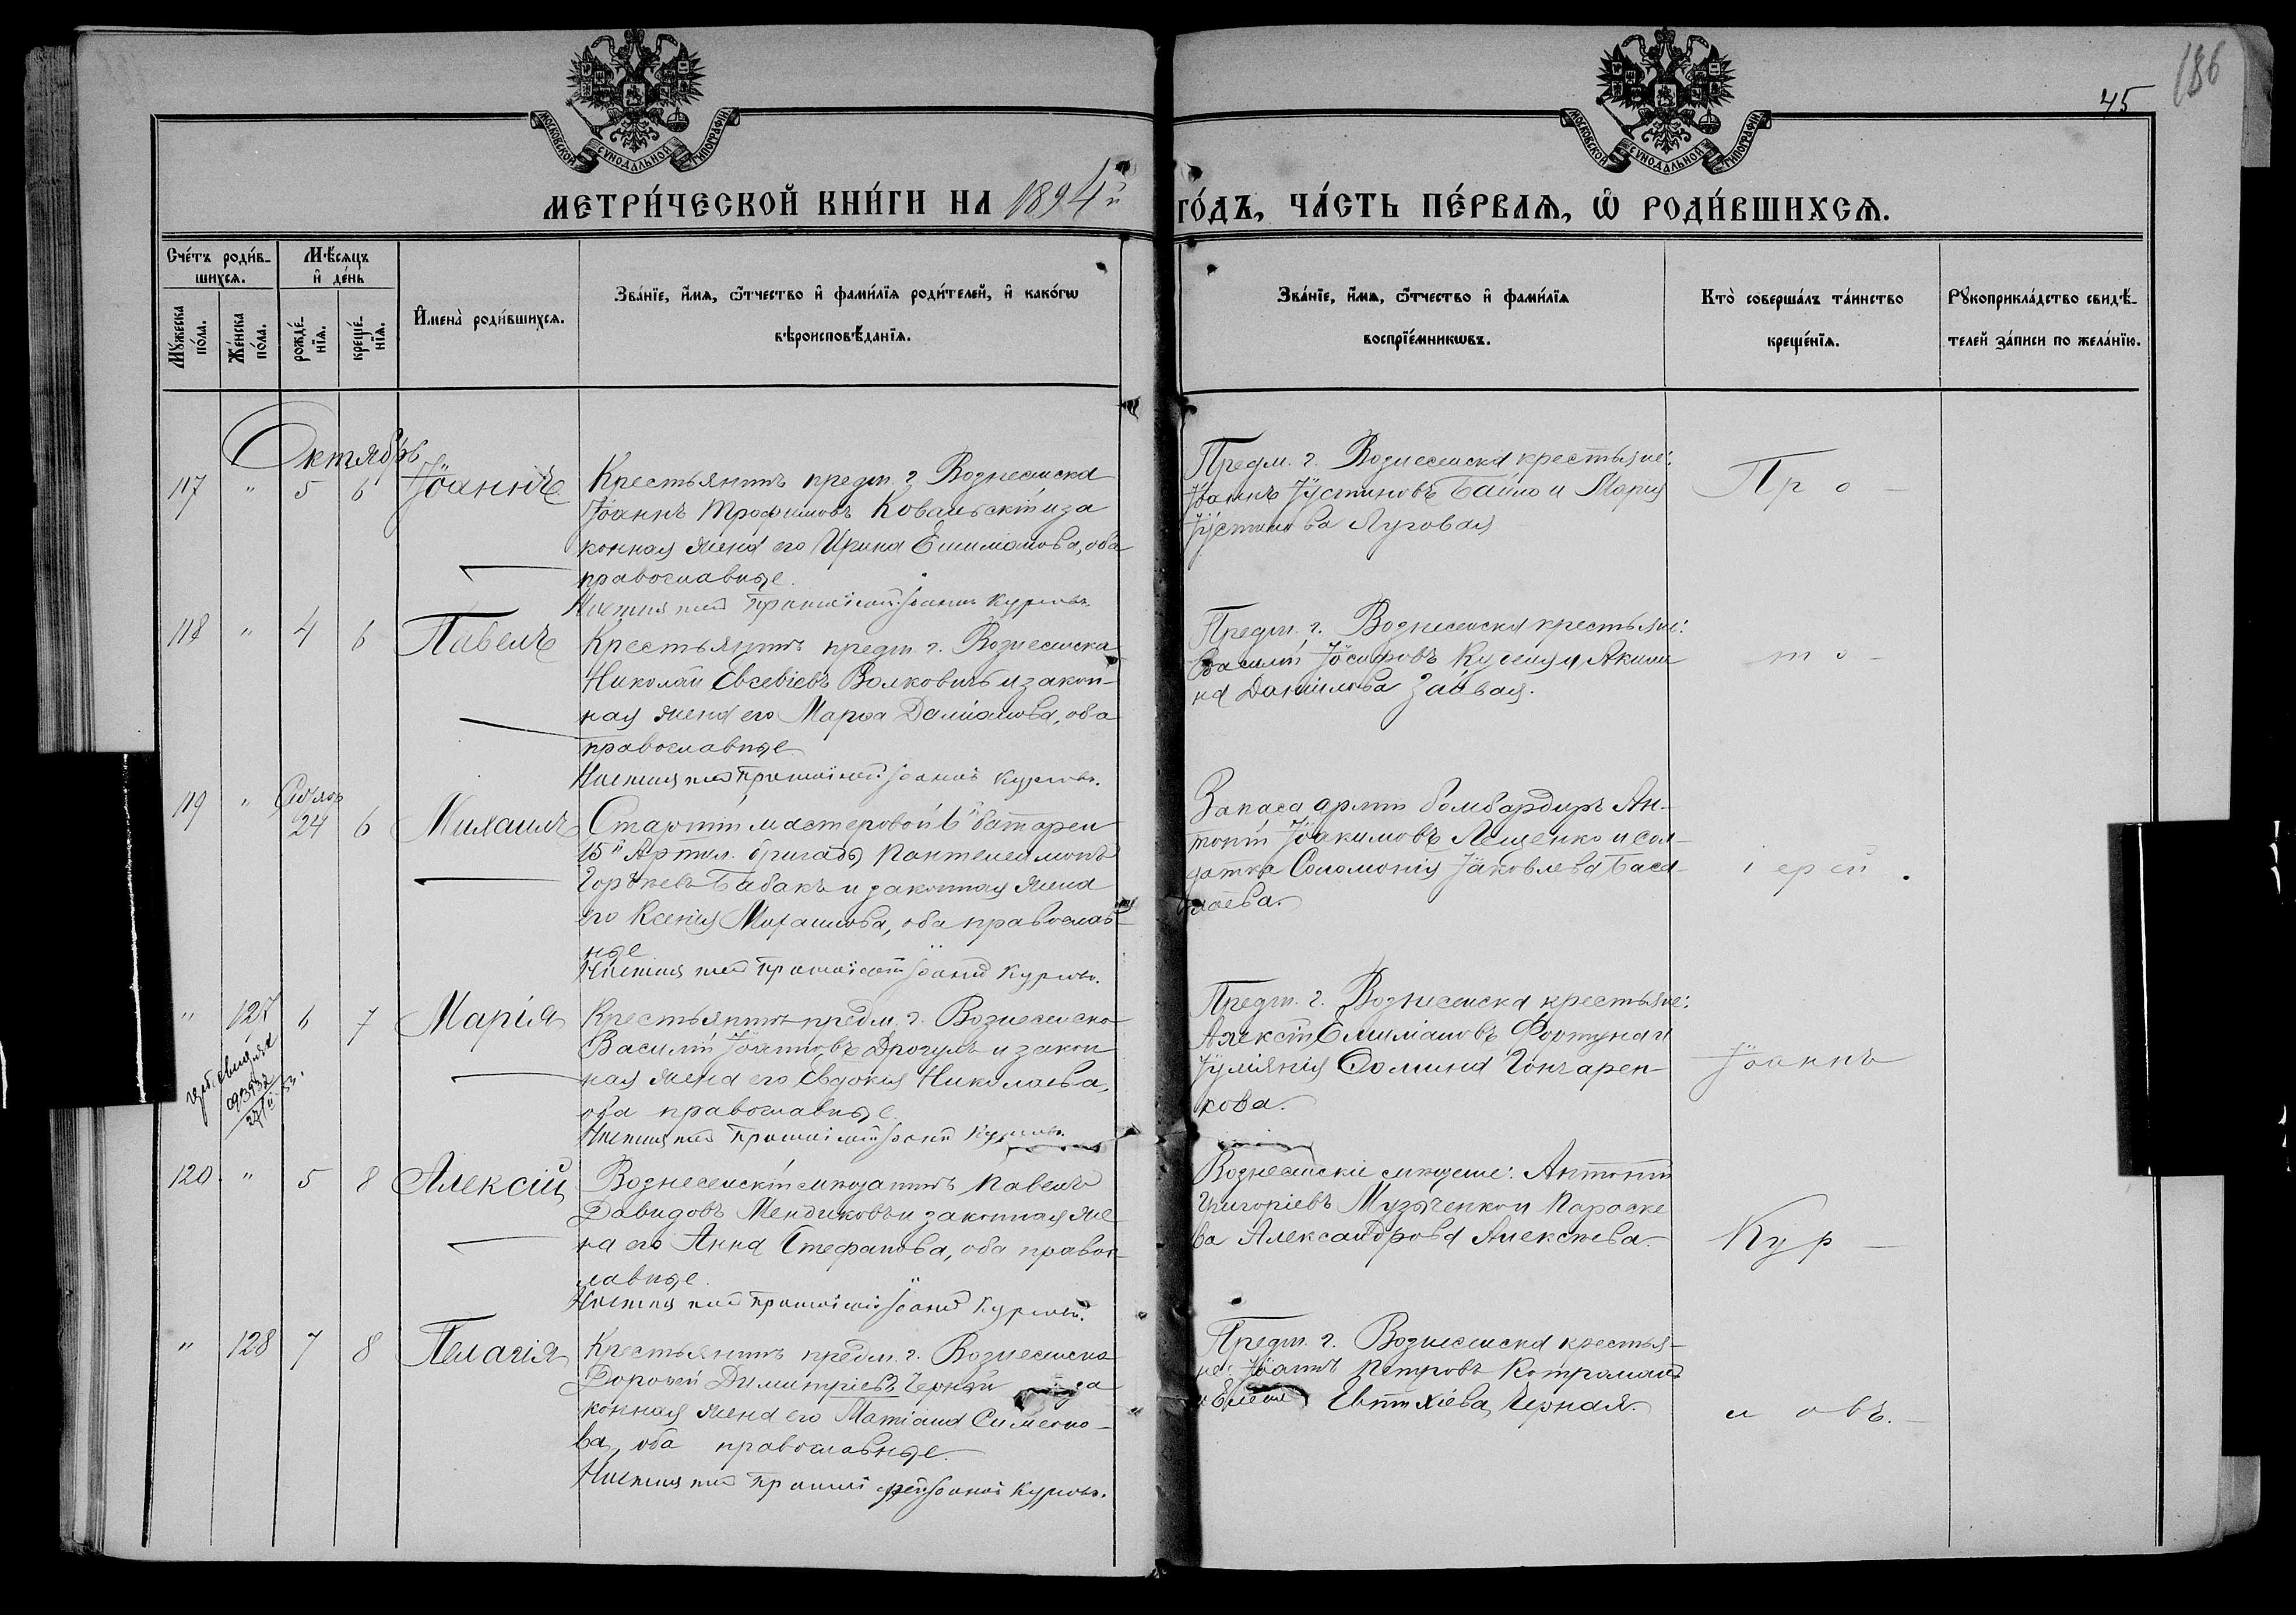 186
45
МОСКОВСКОЙ СѴНОДАЛЬНОЙ ТИПОГРАФІИ
МОСКОВСКОЙ СѴНОДАЛЬНОЙ ТИПОГРАФІИ
МЕТРИ́ЧЕСКОЙ КНИ́ГИ НА 1894й ГО́ДЪ, ЧА́СТЬ ПЕ́РВАѦ, Ѡ҆ РОДИ́ВШИХСѦ.
Сче́тъ роди́в-
шихсѧ.
Мѣ́сѧцъ
и҆ де́нь
Мꙋ́жеска
по́ла.
Же́нска
по́ла.
рожде́-
нїѧ.
креще́-
нїѧ.
И҆мена̀ роди́вшихсѧ.
Зва́нїе, и҆́мѧ, ѻ҆́тчество и҆ фами́лїѧ роди́телей, и҆ како́гѡ
вѣроисповѣ́данїѧ.
Зва́нїе, и҆́мѧ, ѻ҆́тчество и҆ фами́лїѧ
воспрїе́мникѡвъ.
Кто̀ соверша́лъ та́инство
креще́нїѧ.
Рꙋкоприкла́дство свидѣ́-
телей за́писи по жела́нїю.
Октябрь
117 " 5 6 Іоаннъ
Крестьянинъ предм. г. Вознесенска
Іоаннъ Трофимовъ Ковальскій и за
конная жена его Ирина Емиліанова, оба
православные.
Предм. г. Вознесенска крестьяне:
Іоаннъ Іустиновъ Байло и Марія
Іустинова Луговая
Про-
118 " 4 6 Павелъ
Крестьянинъ предм. г. Вознесенска
Николай Евсевіевъ Волковичъ и закон-
ная жена его Марѳа Даміанова, оба
православные.
Протоіерей Іоаннъ Курловъ.
Предм. г. Вознесенска крестьяне:
Василій Іосифовъ и Акили
на Даниилова Заивая.
то-
119 " 24 6 Михаилъ
Старшій мастеровой 6й баттареи
15й Артил. бригады Пантелеимонъ
Бабакъ и законная жена
его Ксенія Михаилова, оба православ-
ные
Протоіерей Іоаннъ Курловъ.
Запаса арміи бомбардиръ Ан-
тоній Іоакимовъ Лещенко и сол-
датка Соломонія Іаковлева
іерей
" 127 6 7 Марія
Крестьянинъ предм. г. Вознесенска
Василій Іоанновъ Дрогуль и закон
ная жена его Евдокія Николаева,
оба православные.
Протоіерей Іоаннъ Курловъ.
Предм. г. Вознесенска крестьяне:
Алексій Емиліановъ Фортуна и
Іуліанія Ѳомина Гончарен-
кова.
Іоаннъ
120 " 5 8 Алексій
Вознесенскій мѣщанинъ Павелъ
Давидовъ Мендиковъ и законная же
на его Анна Стефанова, оба правос
лавные.
Протоіерей Іоаннъ Курловъ.
Вознесенскіе мѣщане: Антоній
Григоріевъ Музыченко и Параске
ва Александрова Алексѣева.
Кур-
" 128 7 8 Пелагія
Крестьянинъ предм. г. Вознесенска
Дороѳей Димитріевъ Черный за
конная жена его Татіана Симеоно-
ва, оба православные.
Протоіерей Іоаннъ Курловъ.
Предм. г. Вознесенска крестья-
не: Іоаннъ Петровъ
и Елена Евтихіева Черная.
ловъ.